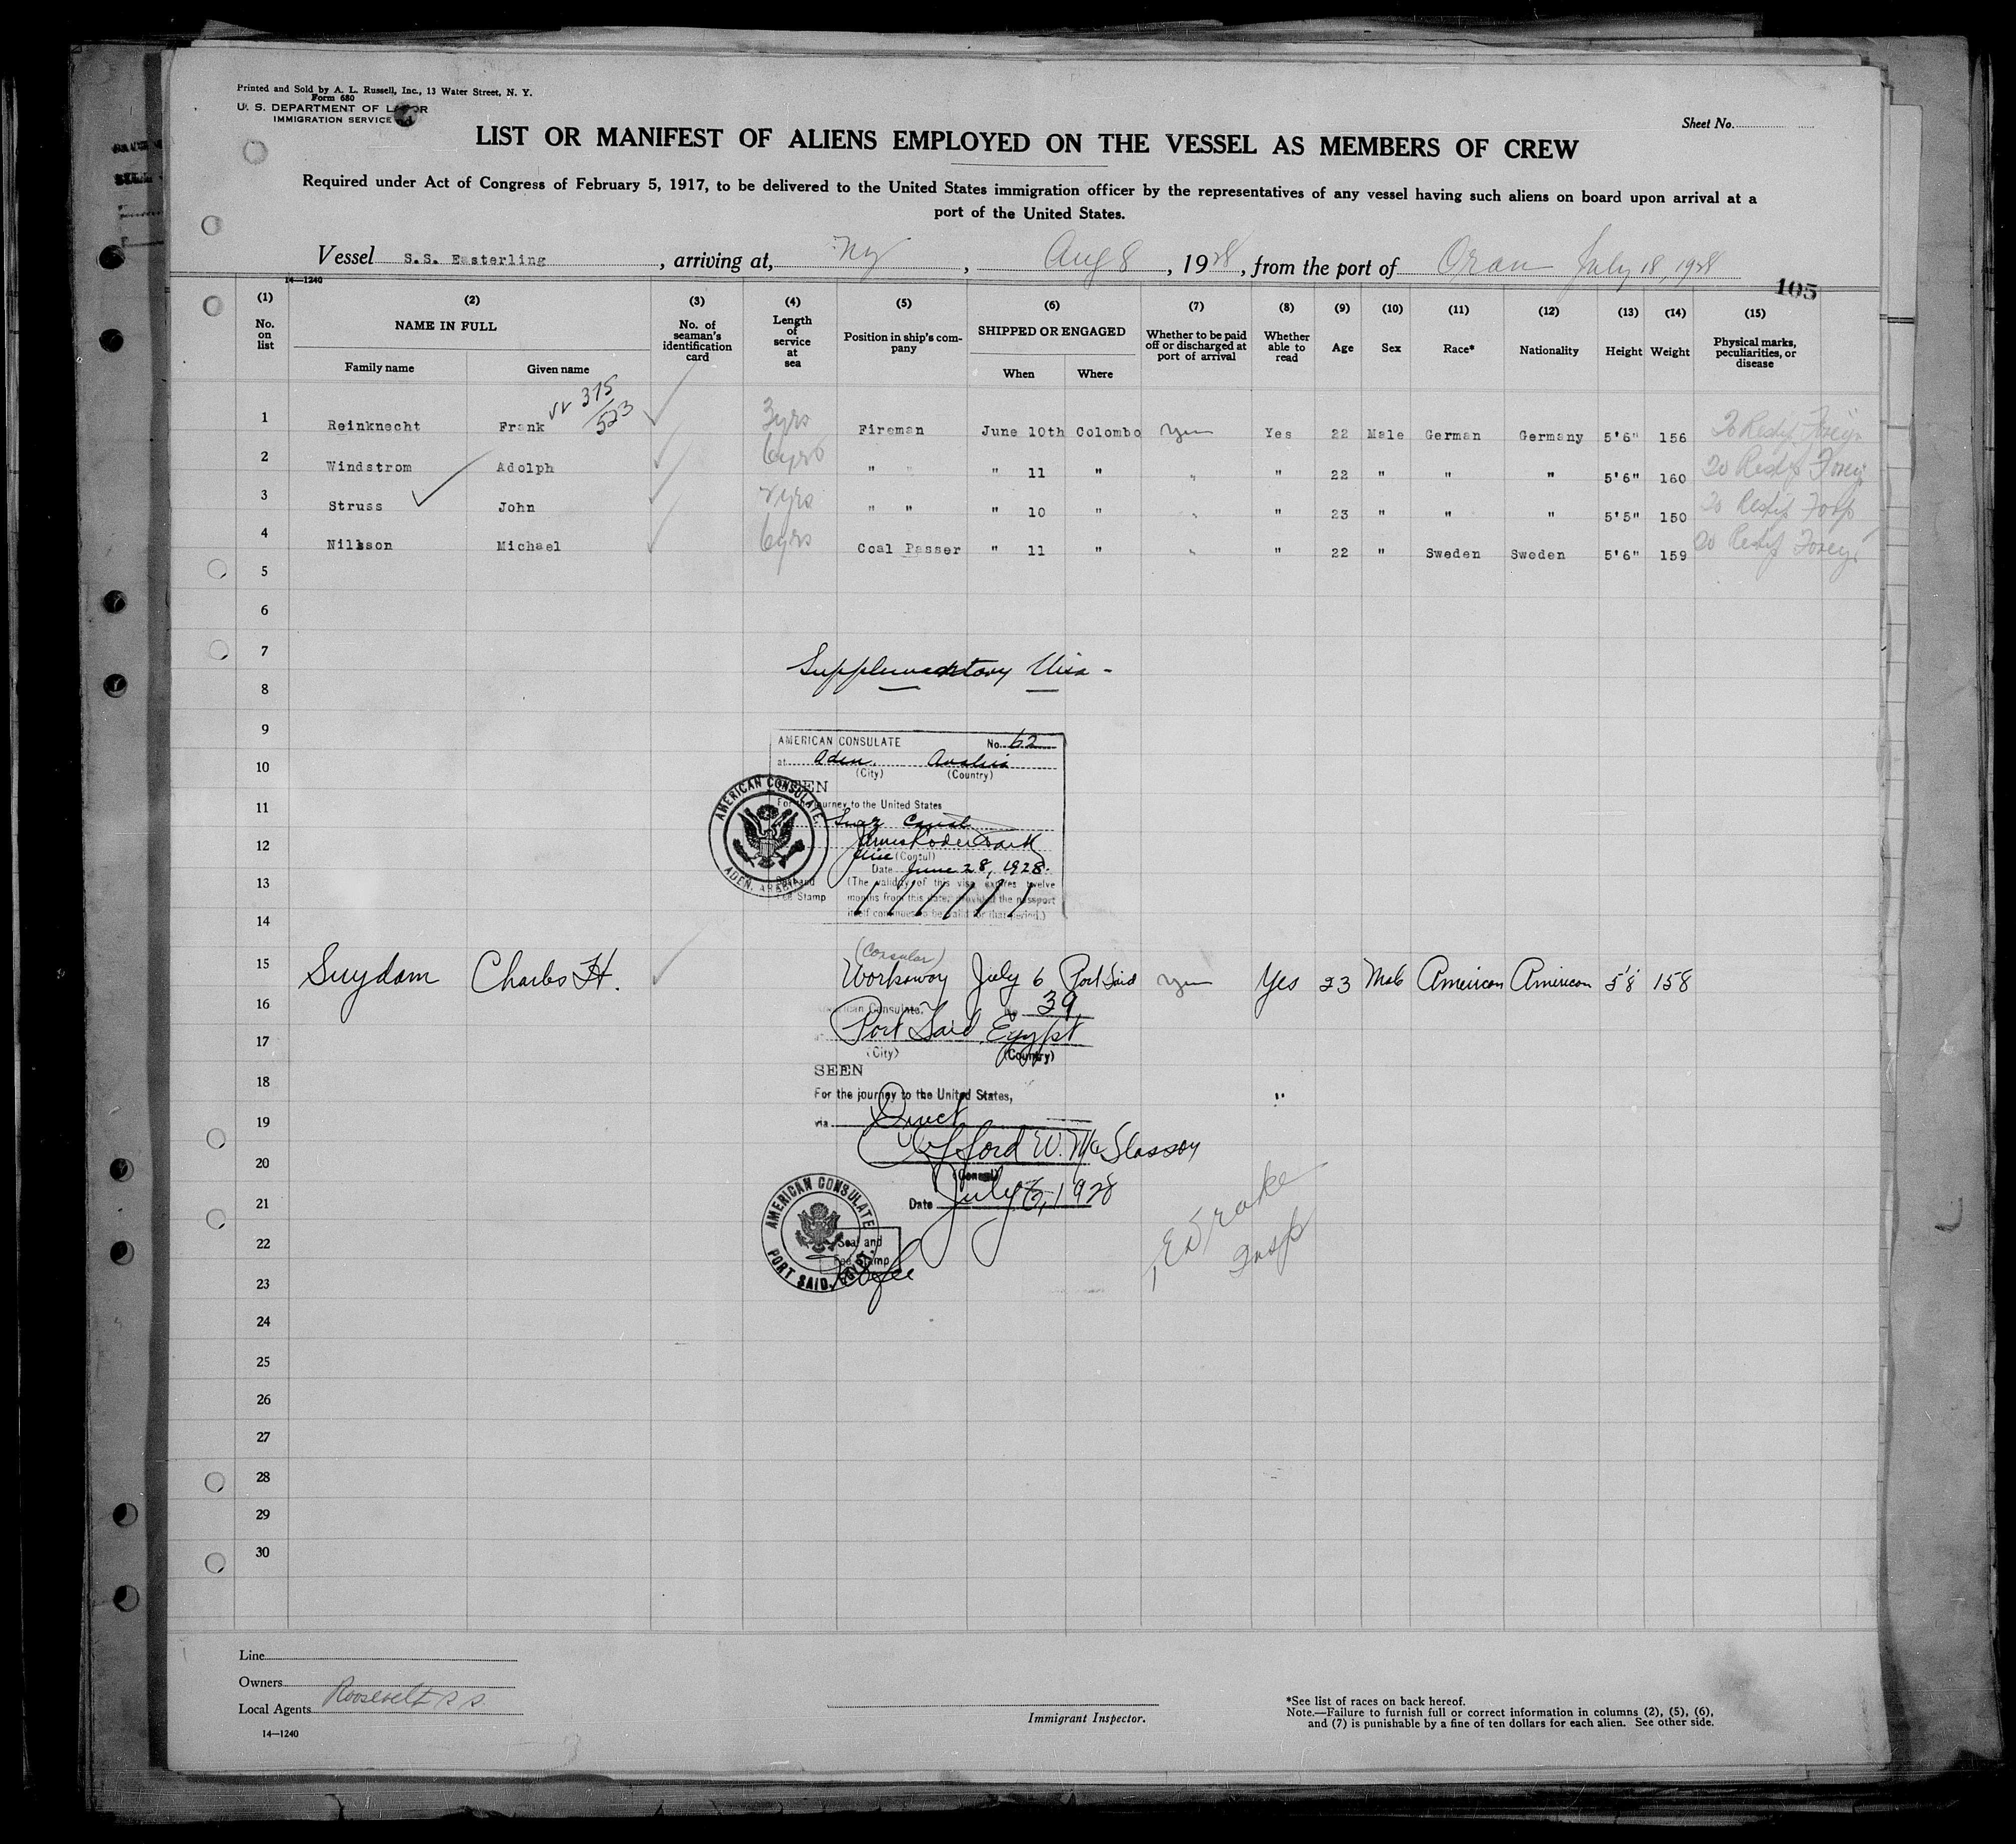 Printed and Sold by A. L. Russell, Inc., 13 Water Street, N. Y.
Form 680
U. S. DEPARTMENT OF LABOR
IMMIGRATION SERVICE
Sheet No.
LIST OR MANIFEST OF ALIENS EMPLOYED ON THE VESSEL AS MEMBERS OF CREW
Required under Act of Congress of February 5, 1917, to be delivered to the United States immigration officer by the representatives of any vessel having such aliens on board upon arrival at a
port of the United States.
Vessel S.S. Easterling, arriving at, Ny, Aug 8, 1928, from the port of Oran July 18, 1928
14—1240
105
(1) No. on list
(2) NAME IN FULL Family name Given name
(3) No. of seaman's identification card
(4) Length of service at sea
(5) Position in ship's company
(6) SHIPPED OR ENGAGED When Where
(7) Whether to be paid off or discharged at port of arrival
(8) Whether able to read
(9) Age
(10) Sex
(11) Race*
(12) Nationality
(13) Height
(14) Weight
(15) Physical marks, peculiarities, or disease
375
523
1 Reinknecht Frank 3yrs Fireman June 10th Colombo Yes 22 Male German Germany 5'6" 156
2 Windstrom Adolph 6yrs " " " 11 " " " 22 " " " 5'6" 160
3 Struss John yrs " " " 10 " " " 23 " " " 5'5" 150
4 Nilsson Michael 6yrs Coal Passer " 11 " " " 22 " Sweden Sweden 5'6" 159
5
6
7
Supplementary Visa -
8
9
AMERICAN CONSULATE No. 62
10
at Aden, Arabia
(City) (Country)
SEEN
11
For the journey to the United States
Suez Canal
12
Vice (Consul)
Date June 28, 1928.
13
(The validity of this visa expires twelve
Fee Stamp months from this date, provided the passport
itself continues to be valid for that period.)
AMERICAN CONSULATE, ADEN, ARABIA
14
(Consular)
15 Suydam Charles H. Workaway July 6 Port Said Yes 23 Male American American 5'8" 158
16
American Consulate, No. 39
Port Said, Egypt
17
(City) (Country)
SEEN
18
For the journey to the United States,
19
via Direct
20
(Consul)
21
Date July 6, 1928
22
Seal and
Fee Stamp
AMERICAN CONSULATE PORT SAID, EGYPT
No fee
Insp
23
24
25
26
27
28
29
30
Line
Owners
Local Agents Roosevelt S S
14—1240
Immigrant Inspector.
*See list of races on back hereof.
Note.—Failure to furnish full or correct information in columns (2), (5), (6),
and (7) is punishable by a fine of ten dollars for each alien. See other side.